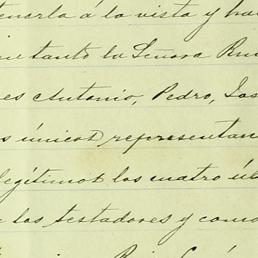 tenerla á la vista y ha
tanto la Señora
es Antonio, Pedro, Jos
s únicos representan
legítimos los cuatro úl
los testadores y como